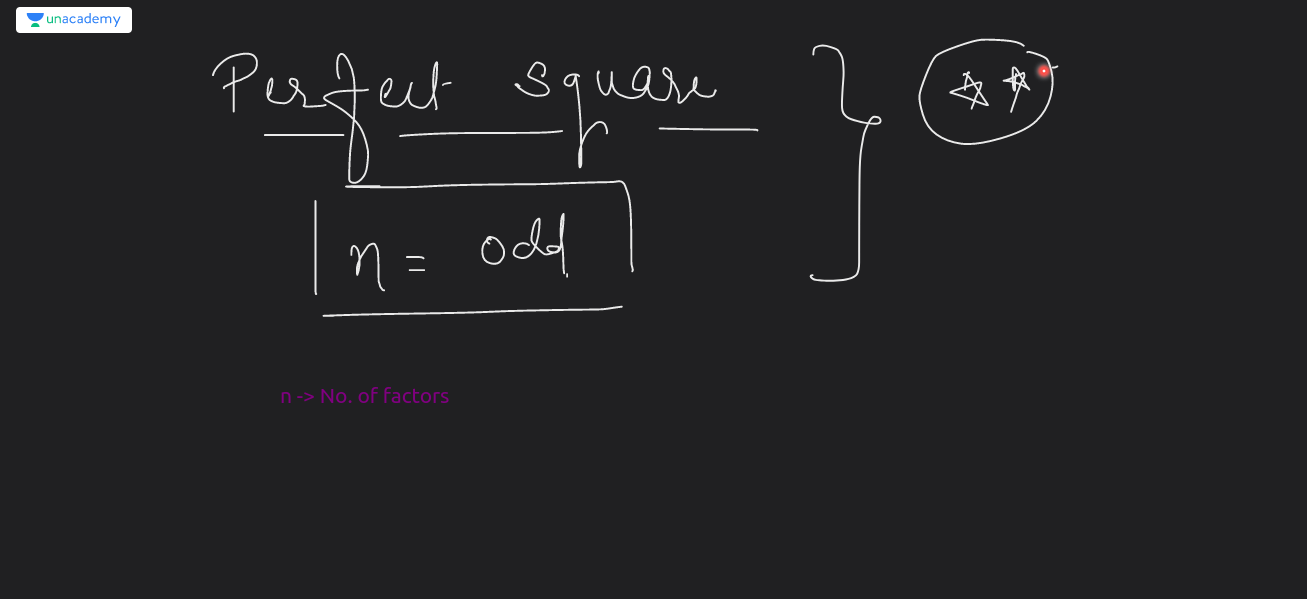 unacademy
Perfect square
n = odd
n -> No. of factors